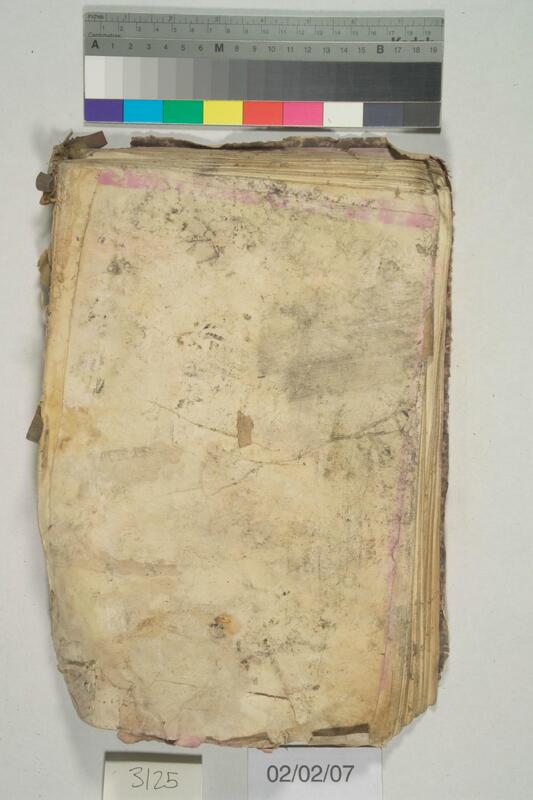 Inches 1 2 3 4 5 6 7 8
1 2 3 4 5 6 7 8 9 10 11 12 13 14 15 16 17 18 19
Centimetres
A 1 2 3 4 5 6 M 8 9 10 11 12 13 14 15 B 17 18 19
3125
02/02/07